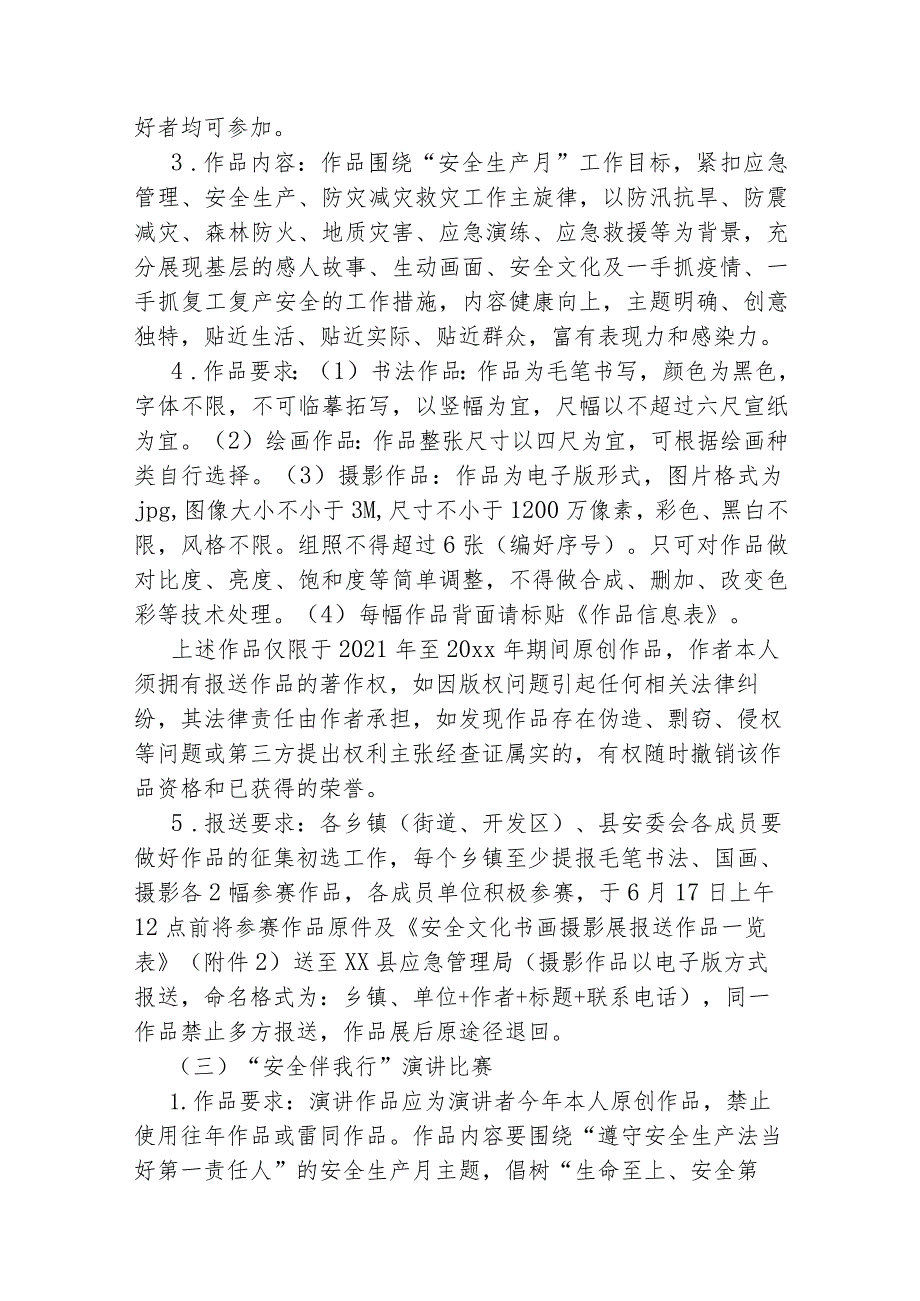 好者均可参加。
3.作品内容：作品围绕“安全生产月”工作目标，紧扣应急
管理、安全生产、防灾减灾救灾工作主旋律，以防汛抗旱、防震
减灾、森林防火、地质灾害、应急演练、应急救援等为背景，充
分展现基层的感人故事、生动画面、安全文化及一手抓疫情、一
手抓复工复产安全的工作措施，内容健康向上，主题明确、创意
独特，贴近生活、贴近实际、贴近群众，富有表现力和感染力。
4.作品要求：（1）书法作品：作品为毛笔书写，颜色为黑色，
字体不限，不可临摹拓写，以竖幅为宜，尺幅以不超过六尺宣纸
为宜。（2）绘画作品：作品整张尺寸以四尺为宜，可根据绘画种
类自行选择。（3）摄影作品：作品为电子版形式，图片格式为
jpg,图像大小不小于3M,尺寸不小于1200万像素，彩色、黑白不
限，风格不限。组照不得超过6张（编好序号）。只可对作品做
对比度、亮度、饱和度等简单调整，不得做合成、删加、改变色
彩等技术处理。（4）每幅作品背面请标贴《作品信息表》。
上述作品仅限于2021年至20xx年期间原创作品，作者本人
须拥有报送作品的著作权，如因版权问题引起任何相关法律纠
纷，其法律责任由作者承担，如发现作品存在伪造、剽窃、侵权
等问题或第三方提出权利主张经查证属实的，有权随时撤销该作
品资格和已获得的荣誉。
5.报送要求：各乡镇（街道、开发区）、县安委会各成员要
做好作品的征集初选工作，每个乡镇至少提报毛笔书法、国画、
摄影各2幅参赛作品，各成员单位积极参赛，于6月17日上午
12点前将参赛作品原件及《安全文化书画摄影展报送作品一览
表》（附件2）送至XX县应急管理局（摄影作品以电子版方式
报送，命名格式为：乡镇、单位+作者+标题+联系电话），同一
作品禁止多方报送，作品展后原途径退回。
（三）“安全伴我行”演讲比赛
1.作品要求：演讲作品应为演讲者今年本人原创作品，禁止
使用往年作品或雷同作品。作品内容要围绕“遵守安全生产法当
好第一责任人”的安全生产月主题，倡树“生命至上、安全第